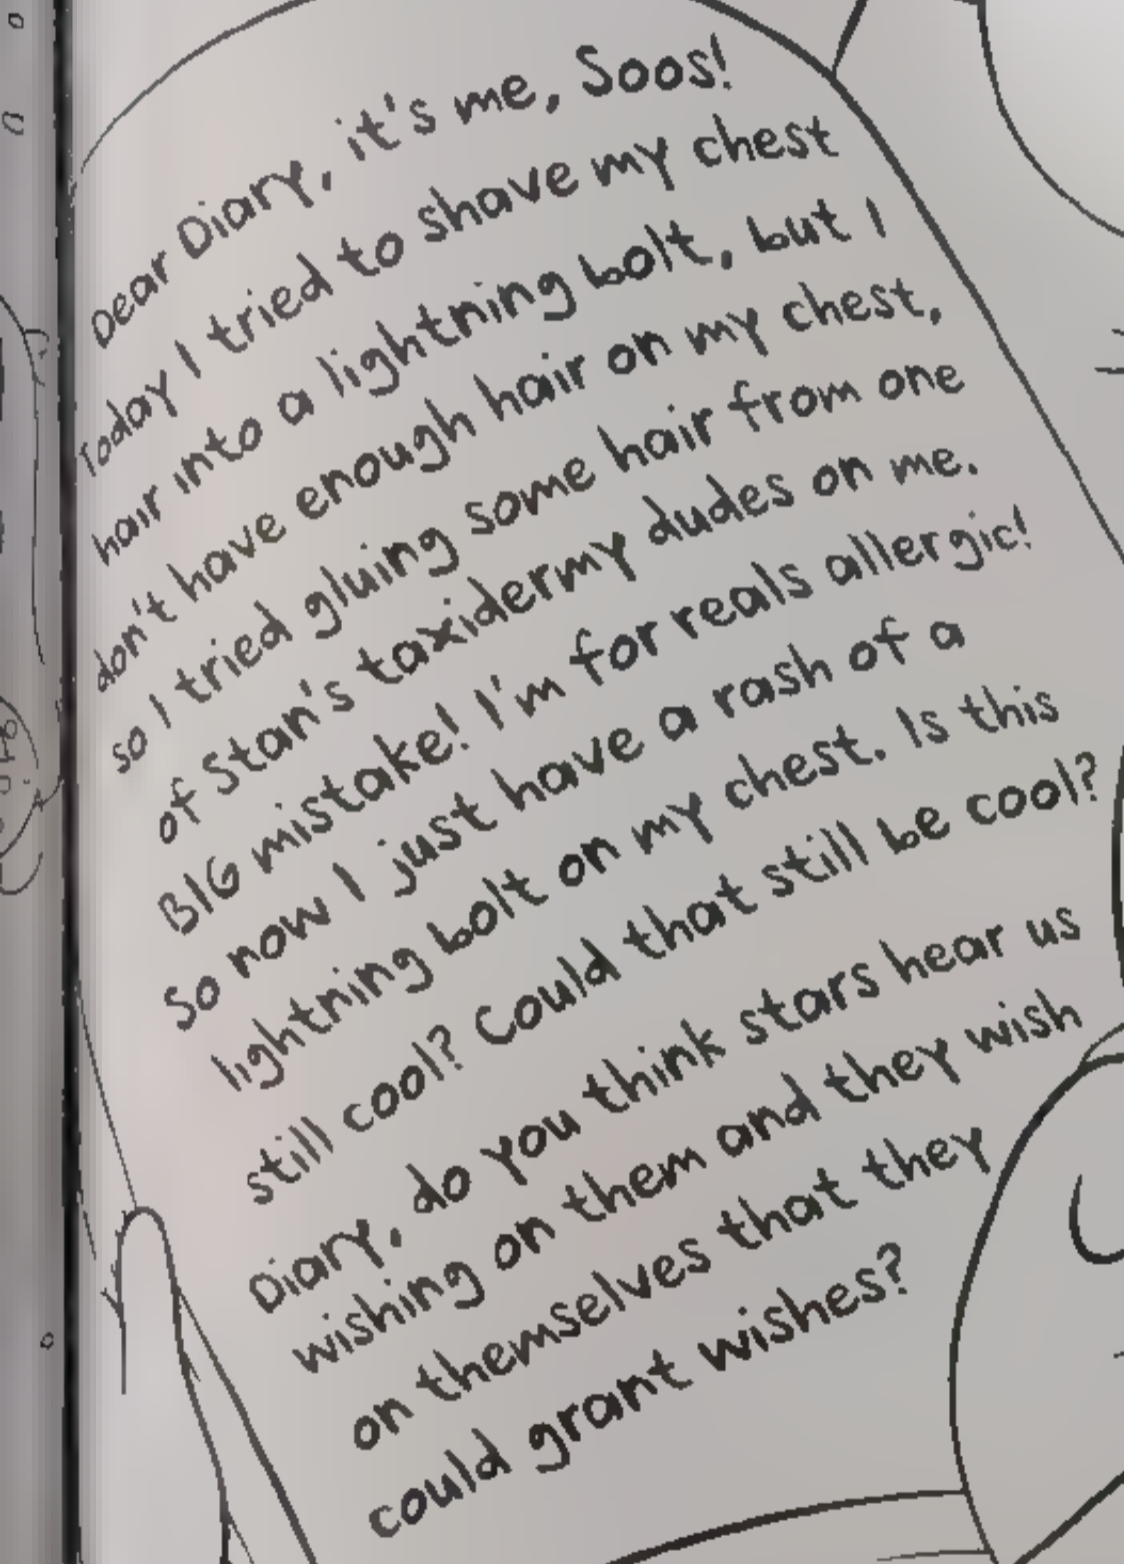 Dear Diary, it's me, Soos!
Today I tried to shave my chest
hair into a lightning bolt, but I
don't have enough hair on my chest,
so I tried gluing some hair from one
of Stan's taxidermy dudes on me.
BIG mistake! I'm for reals allergic!
So now I just have a rash of a
lightning bolt on my chest. Is this
still cool? Could that still be cool?
Diary, do you think stars hear us
wishing on them and they wish
on themselves that they
could grant wishes?